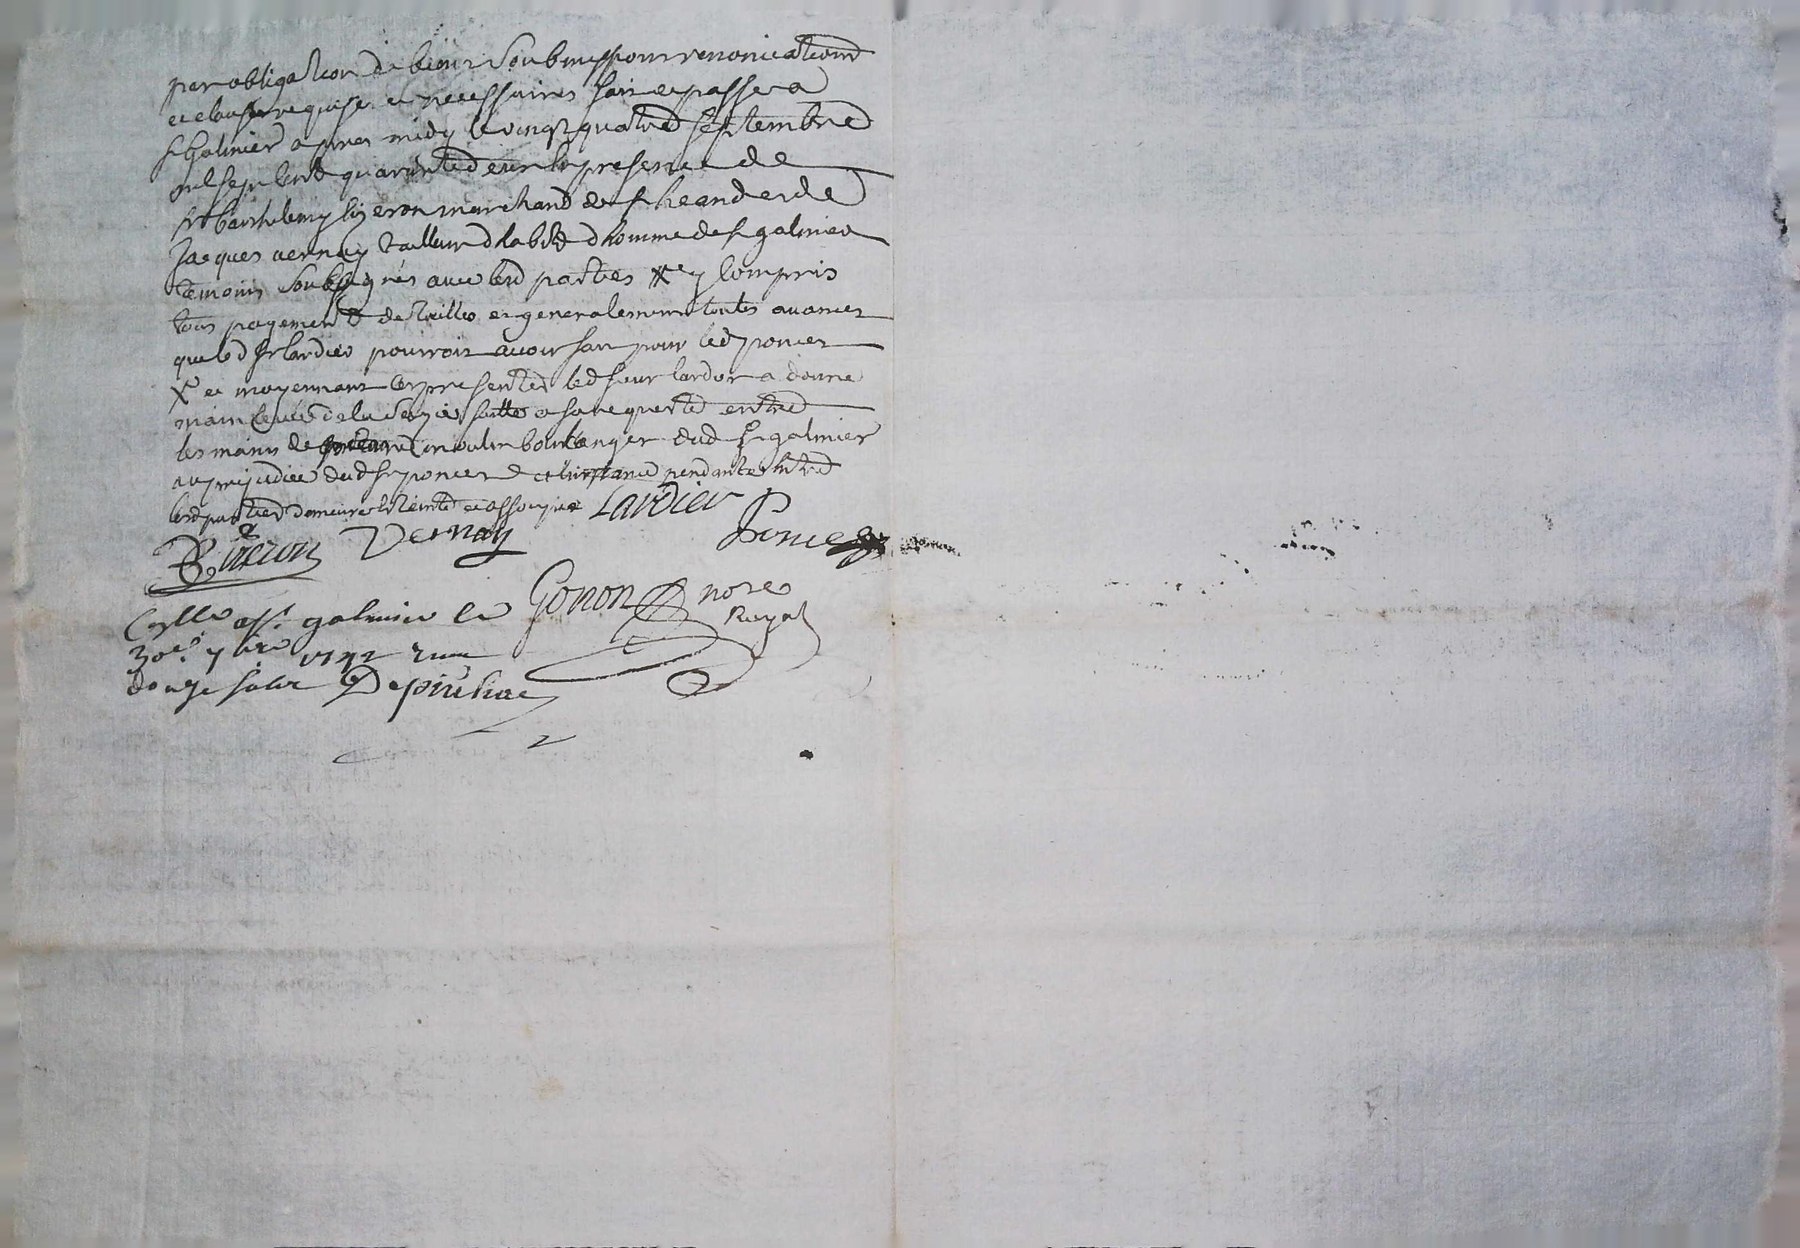 par obligation de biens soubmission renonciations
et clauses requises et necessaires fait et passé a
st Galmier apres midy le vingt quatre septembre
mil sept cent quarante deux en presence de
sr barthelemy marchand de st heand et de
Jacques vernay tailleur d'habits d'homme de st galmier
temoins soubsignés avec lesd parties X et y compris
tous payements de tailles et generalement toutes avances
que led sr lardier pourroit avoir fait pour led poncet
X et moyennant les presentes led sieur lardier a donné
main levée de la saisie faitte a sa requeste entre
les mains de moulin boulanger dud st galmier
au prejudice dud sr poncet et l'instance pendante entre
lesd parties demeure eteinte et assoupie Lardier
Vernay Poncet
Gonon nore
Royal
Collé a st galmier le
30e 7bre 1742 Reçu
douze sols